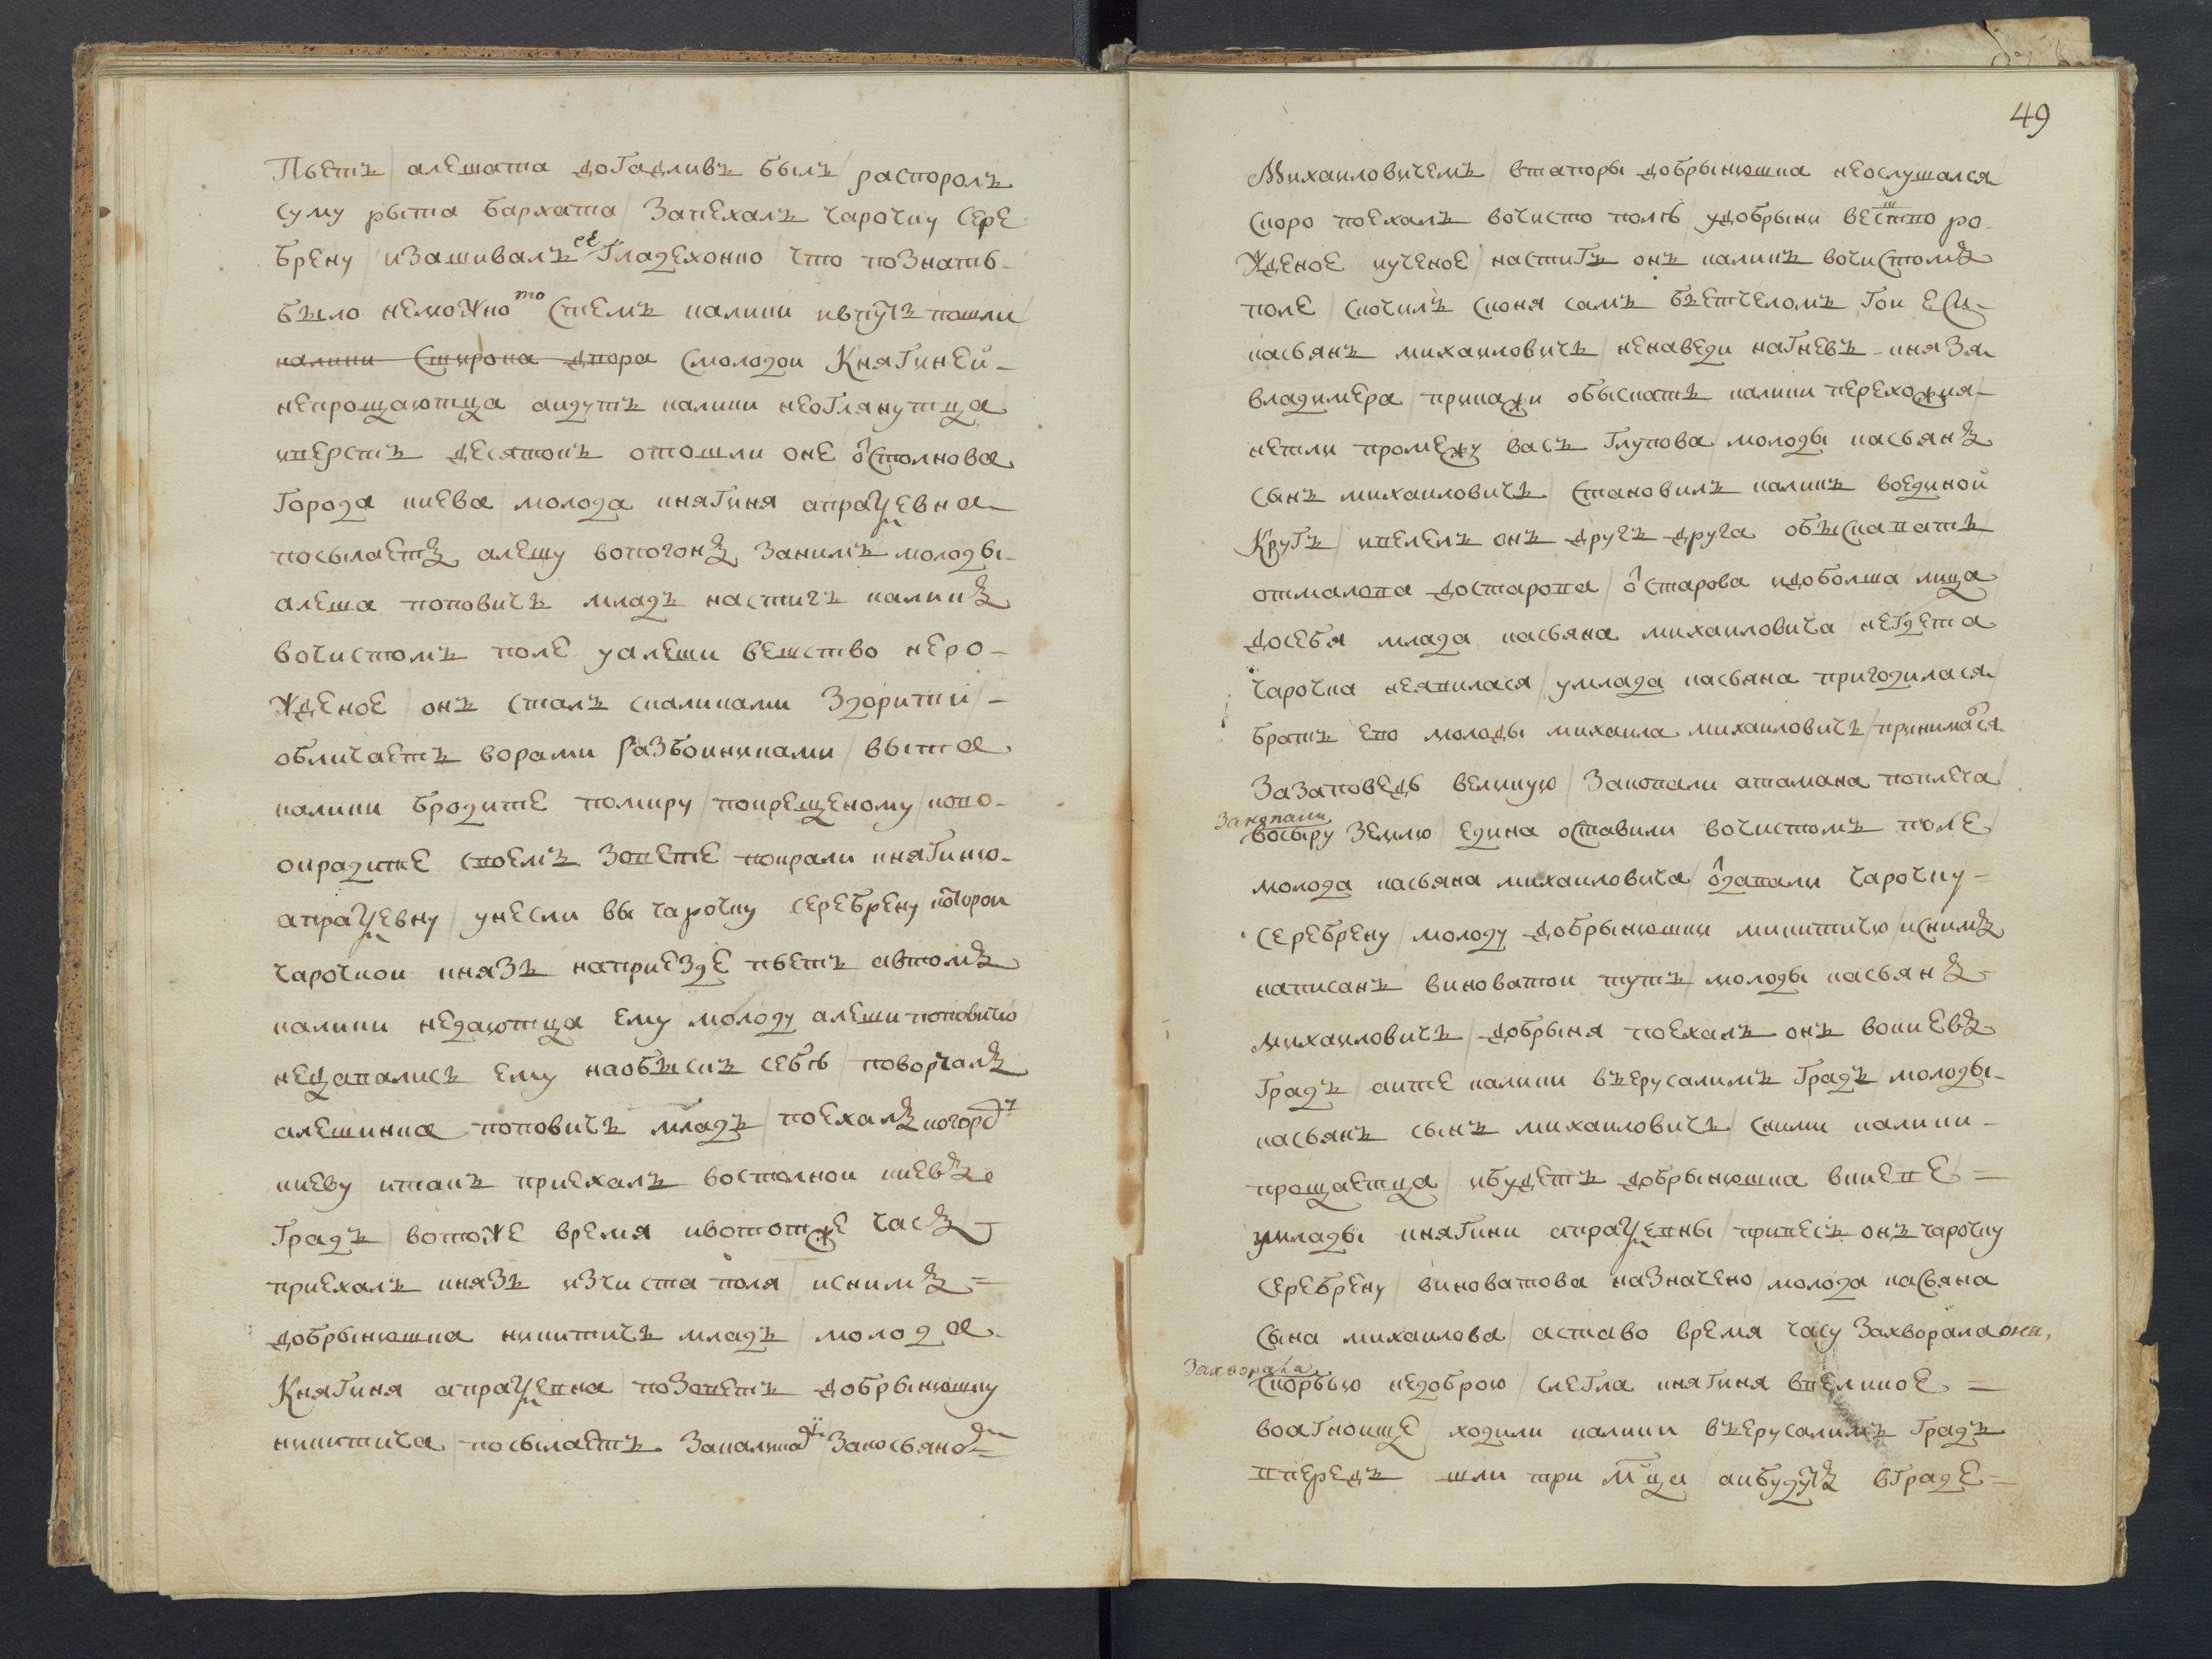 Пьетъ / алешата догадливъ былъ / распоролъ
суму рыта бархата / запехалъ чарочку сере
брену / изашивалъ ее гладехонко / что познать
было неможно то / стемъ калики ипуть пошли /
калики Сширока двора смолодои Княгинеи
непрощаютца аидутъ калики неоглянутца
иверстъ десятокъ отошли оне ѿстолнова
города киева / молода княгиня апраѯевна
посылаетъ алешу вопогонь занимъ молоды
алеша поповичь младъ настигъ каликъ
вочистомъ поле уалеши вешство неро-
жденое / онъ сталъ скаликами здорити /
обличаетъ ворами разбоиниками / выта
калики бродите помиру / покрещеному / ково
окрадите своемъ зовете / покрали княгиню
апраѯевну / унесли вы чарочку серебрену которои
чарочкои князъ наприезде пьетъ автомъ
калики недаютца ему молоду алеши поповичю
недавались ему наобыскъ себѣ / поворчалъ
алешинка поповичь младъ / поехалъ когороду
киеву итакъ приехалъ востолнои киевъ
градъ / вотоже время ивототже часъ
приехалъ князъ изчиста поля / иснимъ
добрынюшка никитичь младъ / молода
Княгиня апраѯевна позоветъ добрынюшку
никитича / посылаетъ закаликами закосьяномъ
49
Михаиловичемъ / втапоры добрынюшка неослушался
скоро поехалъ вочисто полѣ / удобрыни вешство ро
жденое иученое / настигъ онъ каликъ вочистомъ
поле / скочилъ сконя самъ бьетчеломъ гои еси
касьянъ михаиловичь / ненаведи нагневъ князя
владимера / прикажи обыскать калики перехожия
нетли промежу васъ глупова / молоды касьянъ
сынъ михаиловичь / становилъ каликъ воединои
Кругъ / ивелелъ онъ другъ друга обыскавать
отмалова достарова / ѿстарова идоболша / лица
досебя млада касьяна михаиловича / негдета
чарочка неявилася / умлада касьяна пригодилася
братъ ево молоды михаила михаиловичь / принимался
зазаповедь великую / закопали атамана поплеча
Закопали
восыру землю / едина оставили вочистомъ поле /
молода касьяна михаиловича / ѿдавали чарочку
серебрену / молоду добрынюшки микитичю / иснимъ
написанъ виноватои тутъ / молоды касьянъ
михаиловичь / добрыня поехалъ онъ вокиевъ
градъ / аите калики въерусалимъ градъ / молоды
касьянъ сынъ михаиловичь / сними калики
прощаетца / ибудетъ добрынюшка вкиеве
умлады княгини апраѯевны / привесъ онъ чарочку
серебрену / виноватова назначено / молода касьяна
Сына михаилова / аставо время часу захворала она,
Захворала
скорбью недоброю / слегла княгиня ввеликое
воагноище / ходили калики въерусалимъ градъ
впередъ шли три мца аибудутъ вграде